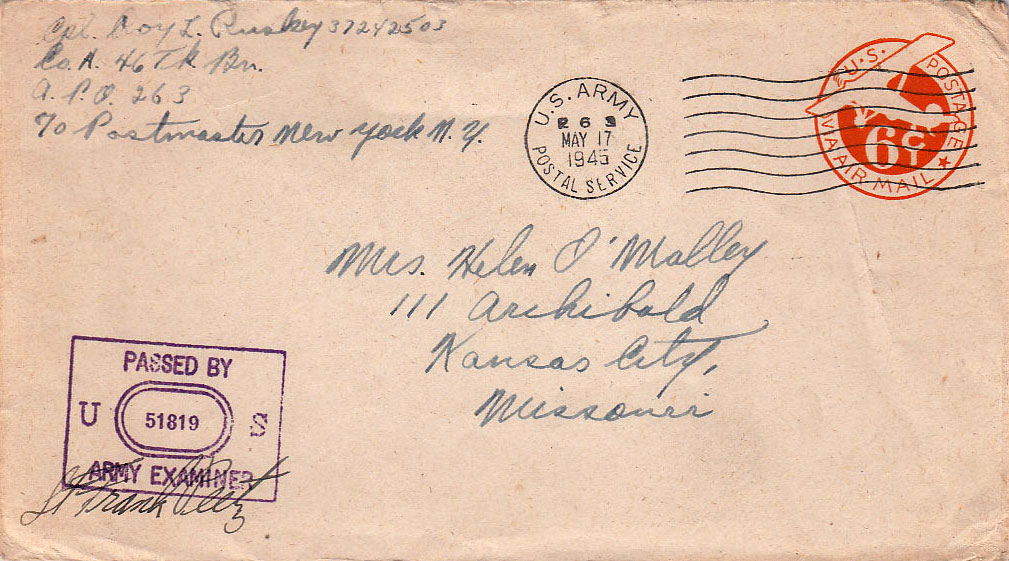 Cpl. Coy L. Ruskey 37242503
Co. A. 46 Tk Bn.
A. P. O. 263
% Postmaster New York N. Y.
U.S. ARMY
263
MAY 17
1945
POSTAL SERVICE
U.S. POSTAGE
6¢
VIA AIR MAIL
Mrs. Helen O'Malley
111 Archibald
Kansas City,
Missouri
PASSED BY
U 51819 S
ARMY EXAMINER
Lt Frank